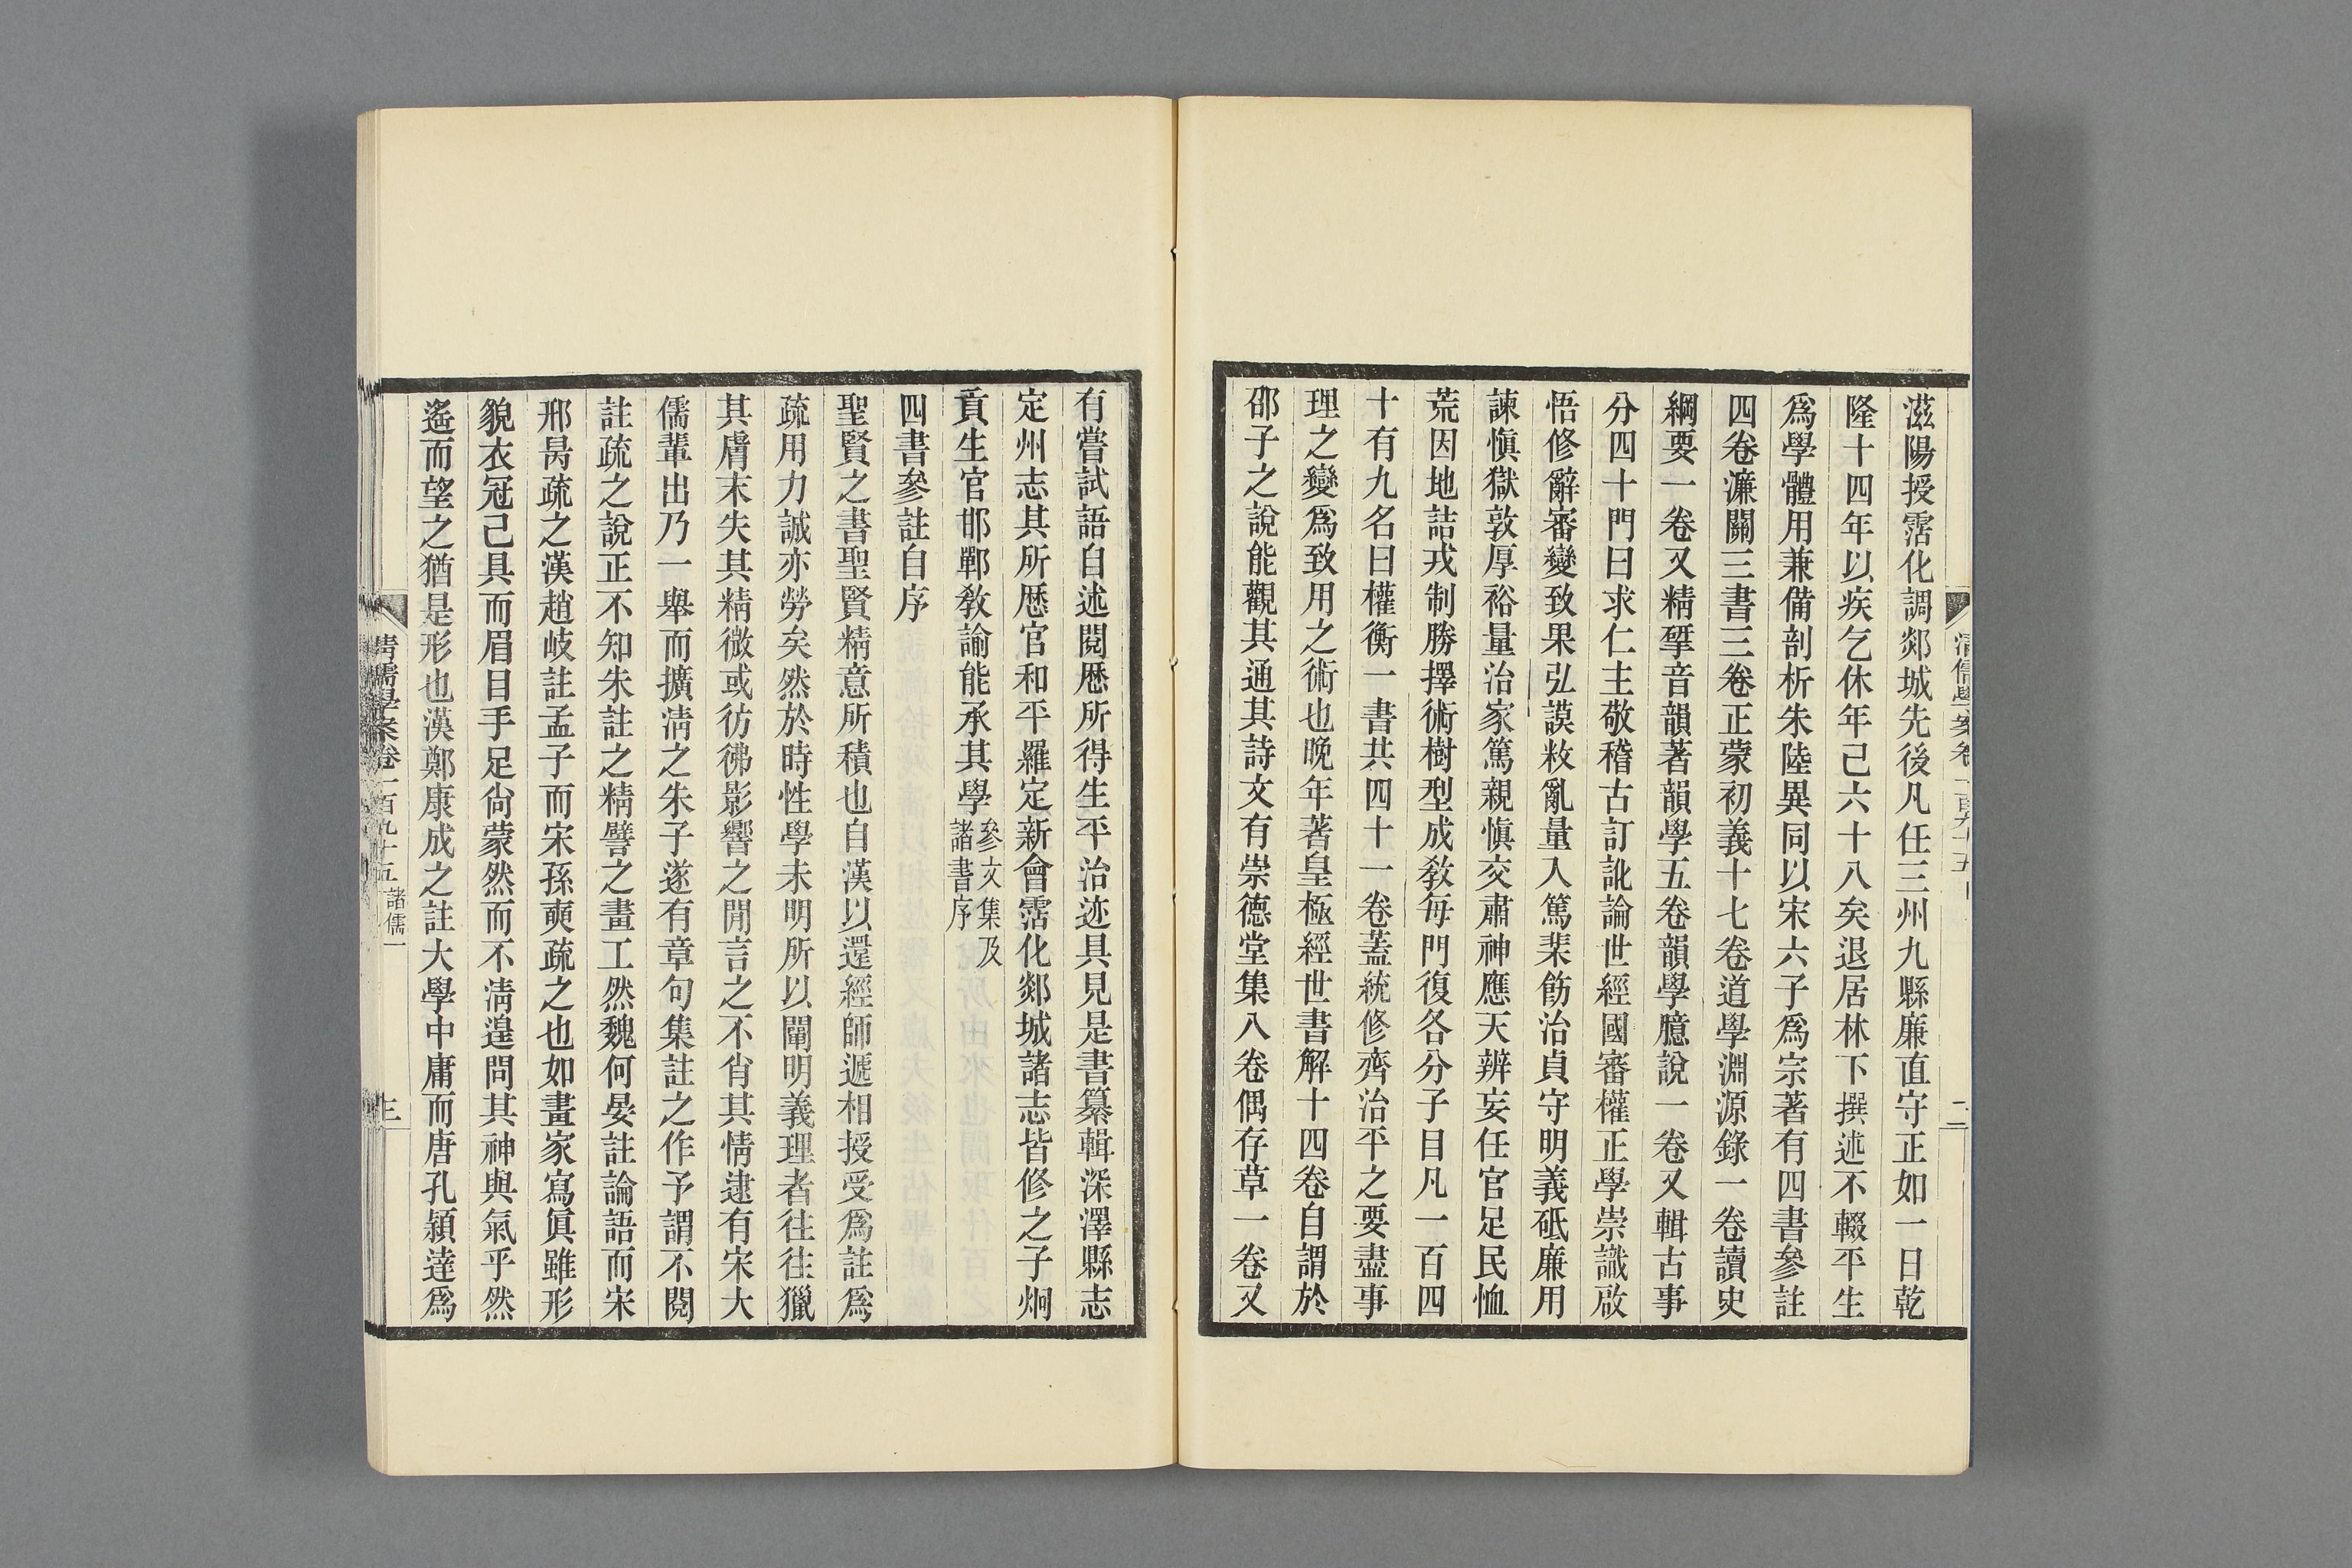 滋陽授霑化調郯城先後凡任三州九縣廉直守正如一日乾
隆十四年以疾乞休年已六十八矣退居林下撰述不輟平生
爲學體用兼備剖析朱陸異同以宋六子爲宗著有四書參註
四卷濂關三書三卷正蒙初義十七卷道學淵源錄一卷讀史
綱要一卷又精揅音韻著韻學五卷韻學臆說一卷又輯古事
分四十門曰求仁主敬稽古訂訛論世經國審權正學崇識啟
悟修辭審變致果弘謨敉亂量入篤棐飭治貞守明義砥廉用
諫愼獄敦厚裕量治家篤親愼交肅神應天辨妄任官足民恤
荒因地詰戎制勝擇術樹型成敎每門復各分子目凡一百四
十有九名曰權衡一書共四十一卷蓋統修齊治平之要盡事
理之變爲致用之術也晚年著皇極經世書解十四卷自謂於
邵子之說能觀其通其詩文有崇德堂集八卷偶存草一卷又
有嘗試語自述閱歷所得生平治迹具見是書纂輯深澤縣志
定州志其所歷官和平羅定新會霑化郯城諸志皆修之子炯
貢生官邯鄲敎諭能承其學參文集及諸書序
四書參註自序
聖賢之書聖賢精意所積也自漢以還經師遞相授受爲註爲
疏用力誠亦勞矣然於時性學未明所以闡明義理者往往獵
其膚末失其精微或彷彿影響之閒言之不肖其情逮有宋大
儒輩出乃一舉而擴淸之朱子遂有章句集註之作予謂不閱
註疏之說正不知朱註之精譬之畫工然魏何晏註論語而宋
邢昺疏之漢趙岐註孟子而宋孫奭疏之也如畫家寫眞雖形
貌衣冠已具而眉目手足尙蒙然而不淸遑問其神與氣乎然
遙而望之猶是形也漢鄭康成之註大學中庸而唐孔穎達爲
淸儒學案卷一百九十五 諸儒一 三